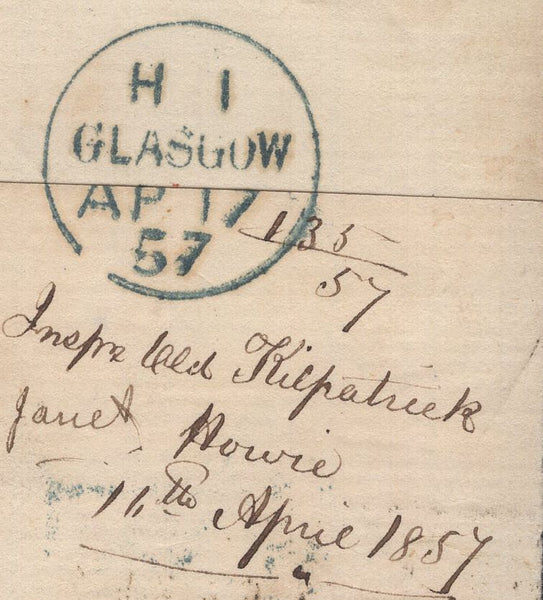 H 1
GLASGOW
AP 17
57
135
57
Inspr Old Kilpatrick
Janet Howie
11th April 1857